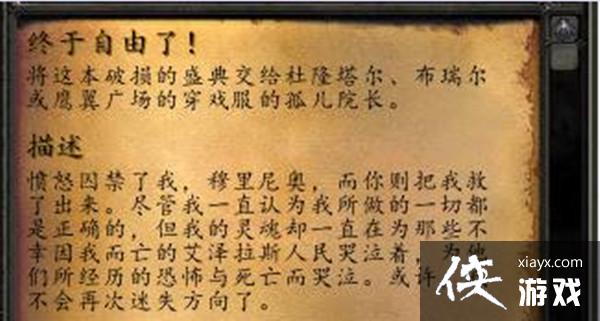 终于自由了！
将这本破损的盛典交给杜隆塔尔、布瑞尔
或鹰翼广场的穿戏服的孤儿院长。
描述
愤怒囚禁了我，穆里尼奥，而你则把我救
了出来。尽管我一直认为我所做的一切都
是正确的，但我的灵魂却一直在为那些不
幸因我而亡的艾泽拉斯人民哭泣着，为他
们所经历的恐怖与死亡而哭泣。或许
不会再次迷失方向了。
侠
xiayx.com
游戏